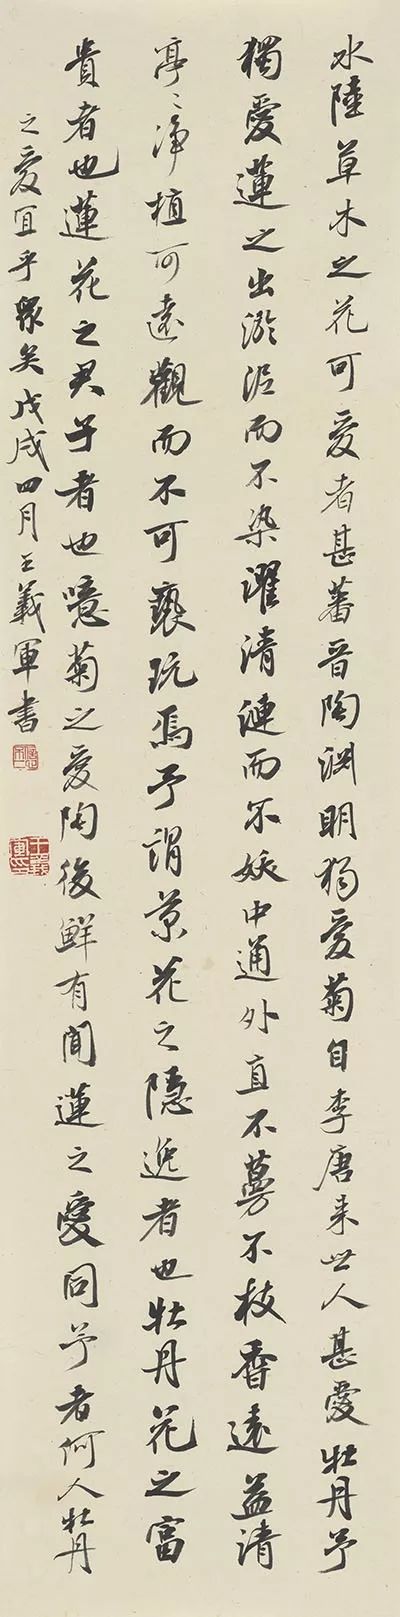 水陸草木之花可愛者甚蕃晋陶渊明独愛菊自李唐来世人甚愛牡丹予
獨愛蓮之出淤泥而不染濯清漣而不妖中通外直不蔓不枝香遠益清
亭々净植可遠觀而不可褻玩焉予謂菊花之隱逸者也牡丹花之富
貴者也蓮花之君子者也噫菊之愛陶後鮮有聞蓮之愛同予者何人牡丹
之愛宜乎眾矣戊戌四月王義軍書
王義軍印